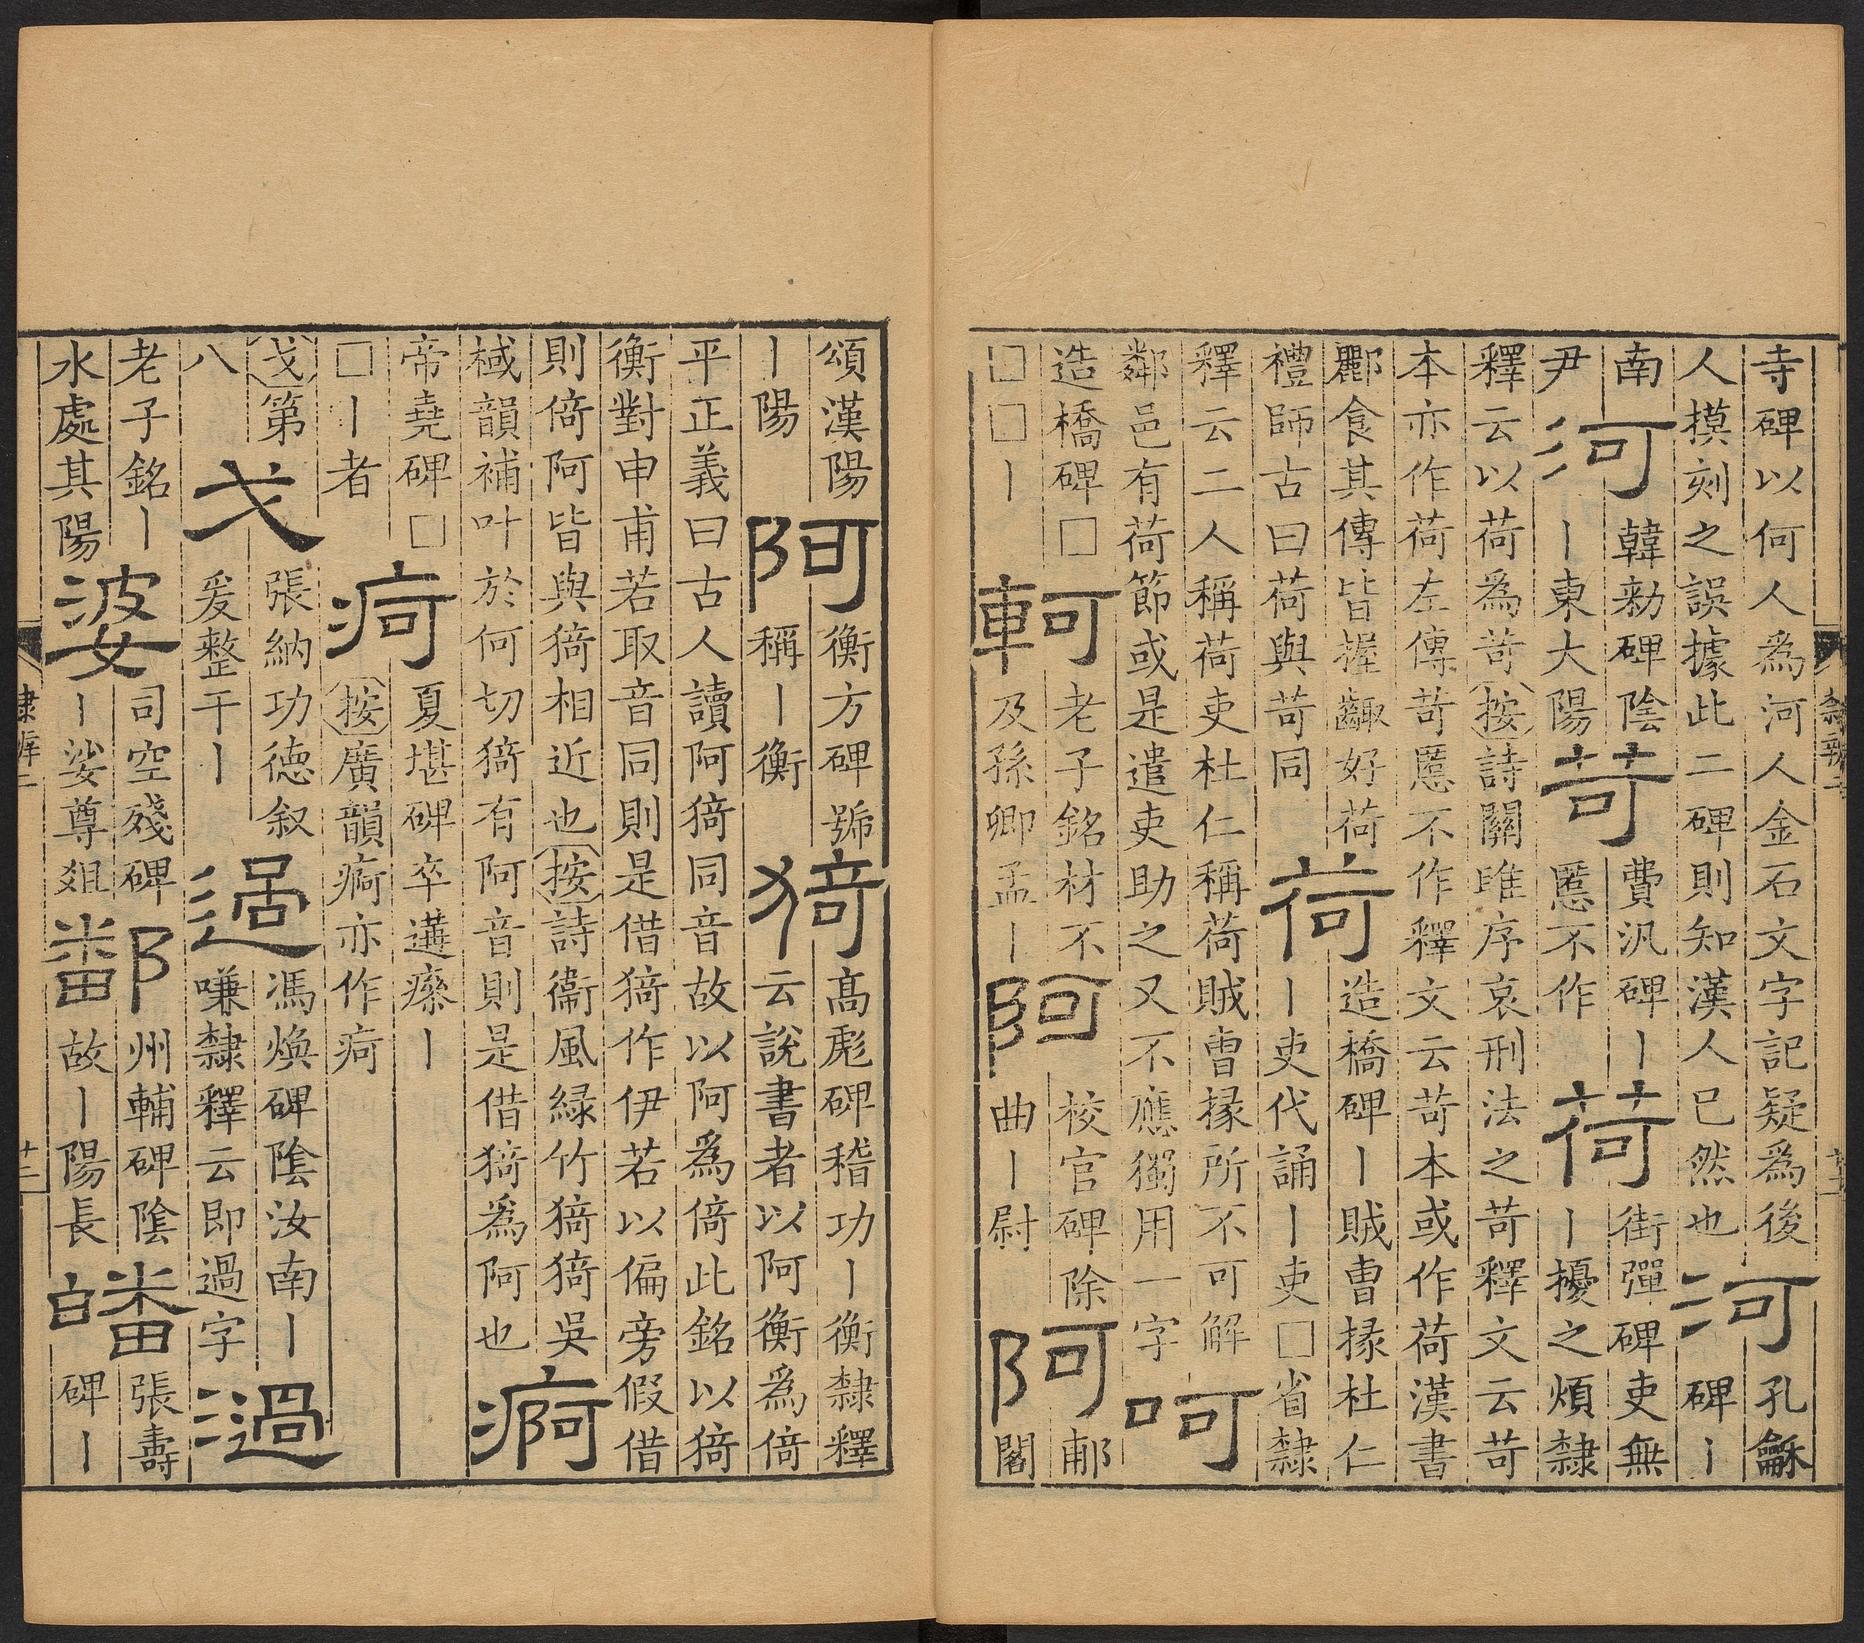 寺碑以何人為河人金石文字記疑為後河孔龢
人摸刻之誤據此二碑則知漢人已然也碑丨
南河韓勑碑陰苛費汎碑丨荷街彈碑吏無
尹丨東大陽慝不作丨擾之煩隸
釋云以荷為苛按詩關雎序哀刑法之苛釋文云苛
本亦作荷左傳苛慝不作釋文云苛本或作荷漢書
酈食其傳皆握齱好荷荷造橋碑丨賊曹掾杜仁
禮師古曰荷與苛同丨吏代誦丨吏□省隸
釋云二人稱荷吏杜仁稱荷賊曹掾所不可解呵
鄰邑有荷節或是遣吏助之又不應獨用一字
造橋碑□軻老子銘材不阿校官碑除阿郙
□□丨及孫卿孟丨曲丨尉閣
頌漢陽阿衡方碑號猗高彪碑稽功丨衡隸釋
丨陽稱丨衡云說書者以阿衡為倚
平正義曰古人讀阿猗同音故以阿為倚此銘以猗
衡對申甫若取音同則是借猗作伊若以偏旁假借
則倚阿皆與猗相近也按詩衞風緑竹猗猗吳痾
棫韻補叶於何切猗有阿音則是借猗為阿也
帝堯碑□疴夏堪碑卒遘瘵丨
□丨者按廣韻痾亦作疴
戈第戈張納功德叙過馮煥碑陰汝南丨過
八爰整干丨嗛隸釋云即過字
老子銘丨婆司空殘碑鄱州輔碑陰皤張壽
水處其陽丨娑尊爼故丨陽長碑丨
隸辨二